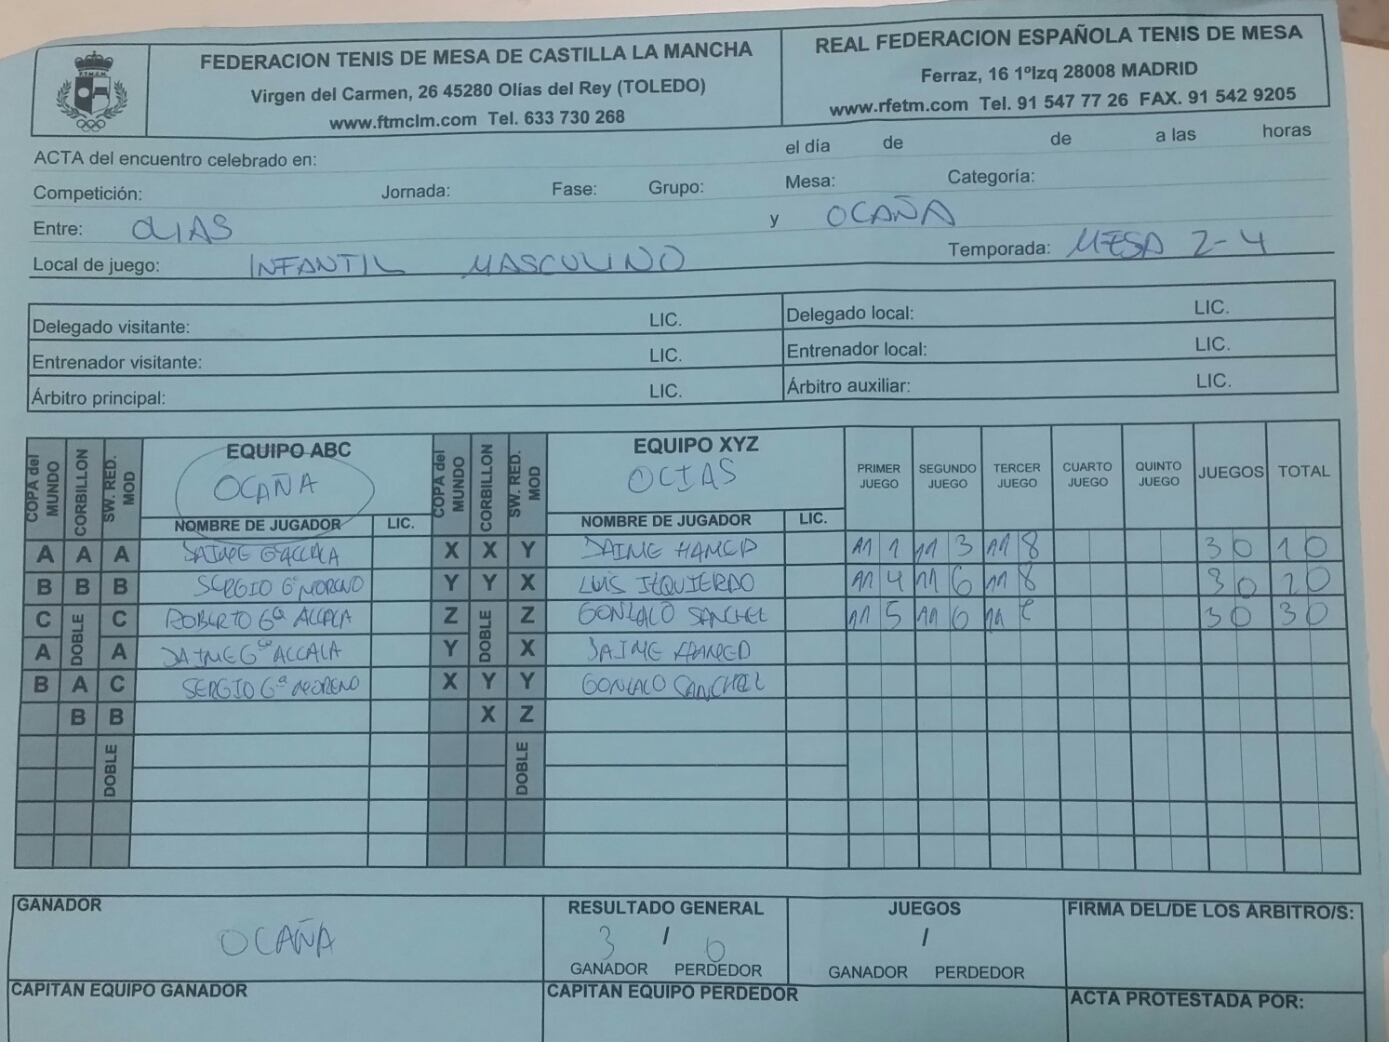 FEDERACION TENIS DE MESA DE CASTILLA LA MANCHA
Virgen del Carmen, 26 45280 Olías del Rey (TOLEDO)
www.ftmclm.com Tel. 633 730 268
REAL FEDERACION ESPAÑOLA TENIS DE MESA
Ferraz, 16 1ºIzq 28008 MADRID
www.rfetm.com Tel. 91 547 77 26 FAX. 91 542 9205
ACTA del encuentro celebrado en: el día de de a las horas
Competición: Jornada: Fase: Grupo: Mesa: Categoría:
Entre: OLIAS y OCAÑA
Local de juego: INFANTIL MASCULINO Temporada: MESA 2-4
Delegado visitante: LIC. Delegado local: LIC.
Entrenador visitante: LIC. Entrenador local: LIC.
Árbitro principal: LIC. Árbitro auxiliar: LIC.
COPA del MUNDO CORBILLON SW. RED. MOD EQUIPO ABC COPA del MUNDO CORBILLON SW. RED. MOD EQUIPO XYZ PRIMER JUEGO SEGUNDO JUEGO TERCER JUEGO CUARTO JUEGO QUINTO JUEGO JUEGOS TOTAL
OCAÑA OLIAS
NOMBRE DE JUGADOR LIC. NOMBRE DE JUGADOR LIC.
A A A JAIME Gª ALCALA X X Y JAIME HAMED 11 1 11 3 11 8 3 0 1 0
B B B SERGIO Gª MORENO Y Y X LUIS IZQUIERDO 11 4 11 6 11 8 3 0 2 0
C DOBLE C ROBERTO Gª ALCALA Z DOBLE Z GONZALO SANCHEZ 11 5 11 6 11 3 0 3 0
A A JAIME Gª ALCALA Y X JAIME HAMED
B A C SERGIO Gª MORENO X Y Y GONZALO SANCHEZ
B B X Z
DOBLE DOBLE
GANADOR RESULTADO GENERAL JUEGOS FIRMA DEL/DE LOS ARBITRO/S:
OCAÑA 3 / 0 /
GANADOR PERDEDOR GANADOR PERDEDOR
CAPITAN EQUIPO GANADOR CAPITAN EQUIPO PERDEDOR ACTA PROTESTADA POR: